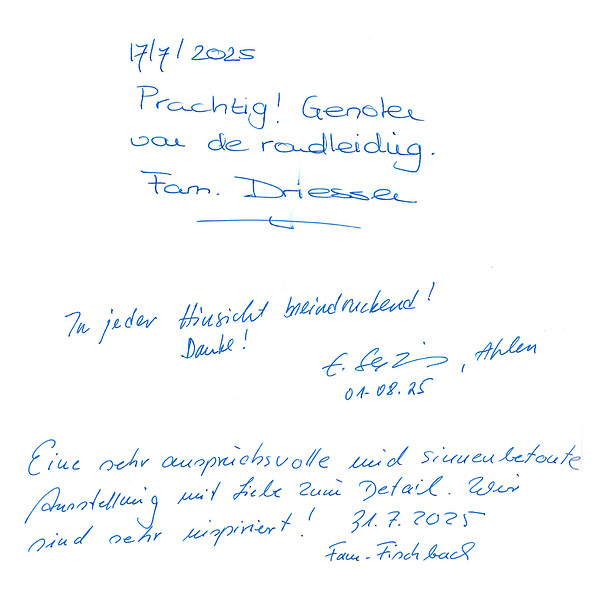 17/7/2025
Prachtig! Genoten
van de rondleiding.
Fam. Driessen
In jeder Hinsicht beeindruckend!
Danke!
E. , Ahlen
01-08.25
Eine sehr anspruchsvolle und sinnenbetonte
Ausstellung mit Liebe zum Detail. Wir
sind sehr inspiriert! 31.7.2025
Fam. Fischbach